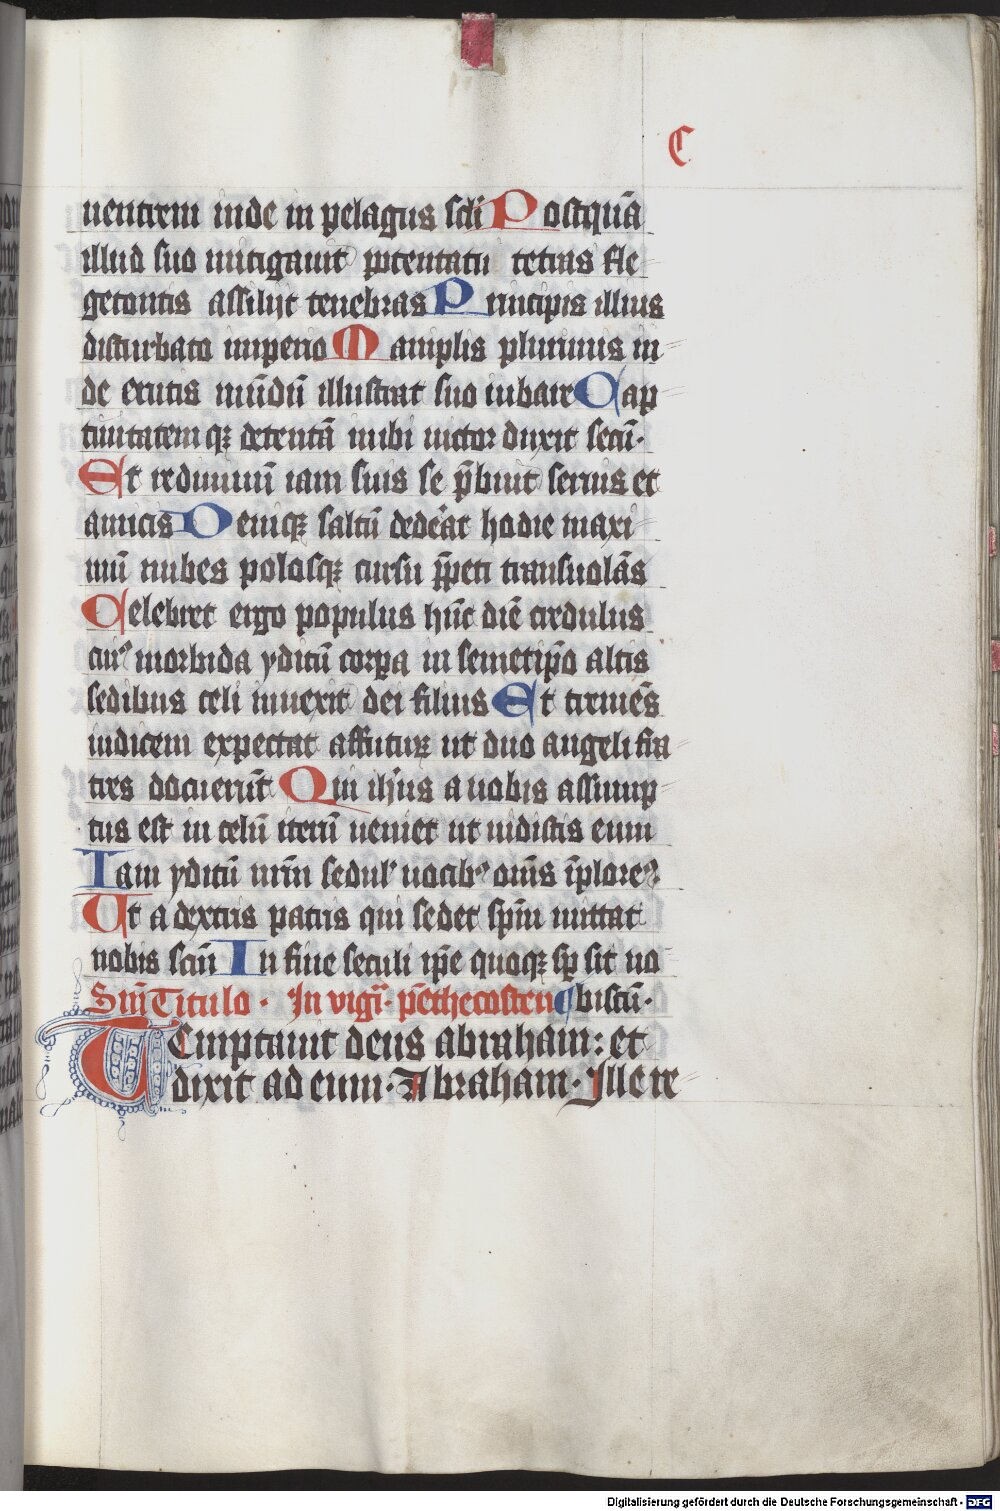 C
uentrem inde in pelagus scli Postquā
illud suo mitigauit potentatu tetras fle
getontis assilijt tenebras Principis illius
disturbato imperio Maniplis plurimis in
de erutis mūdū illustrat suo iubare Cap
tiuitatem qꝫ detentā inibi uictor duxit secū.
Et rediuiuū iam suis se p̄buit seruis et
amicis Deniqꝫ saltū dedēat hodie maxi
mū nubes polosqꝫ cursu p̄peti transuolās
Celebret ergo populus hūc diē credulus
cuiꝰ morbida yditū corpa in semetip̄o altis
sedibus celi inuexit dei filius Et tremēs
iudicem expectat affuturꝫ ut duo angeli fra
tres docuerūt Qui ih̄us a uobis assump
tus est in celū iterū ueniet ut uidistis eum
Iam yditū nr̄m sedulꝰ uocibꝰ om̄s īploreꝰ
Ut a dextris patris qui sedet sp̄m mittat
nobis scm̄ In fine seculi ip̄e quoqꝫ sp̄ sit uo
Sin̄ Titulo · In vigīl. pēthecosten ¶ biscū.
Temptauit deus abraham: et
dixit ad eum. Abraham. Ille re
Digitalisierung gefördert durch die Deutsche Forschungsgemeinschaft - DFG